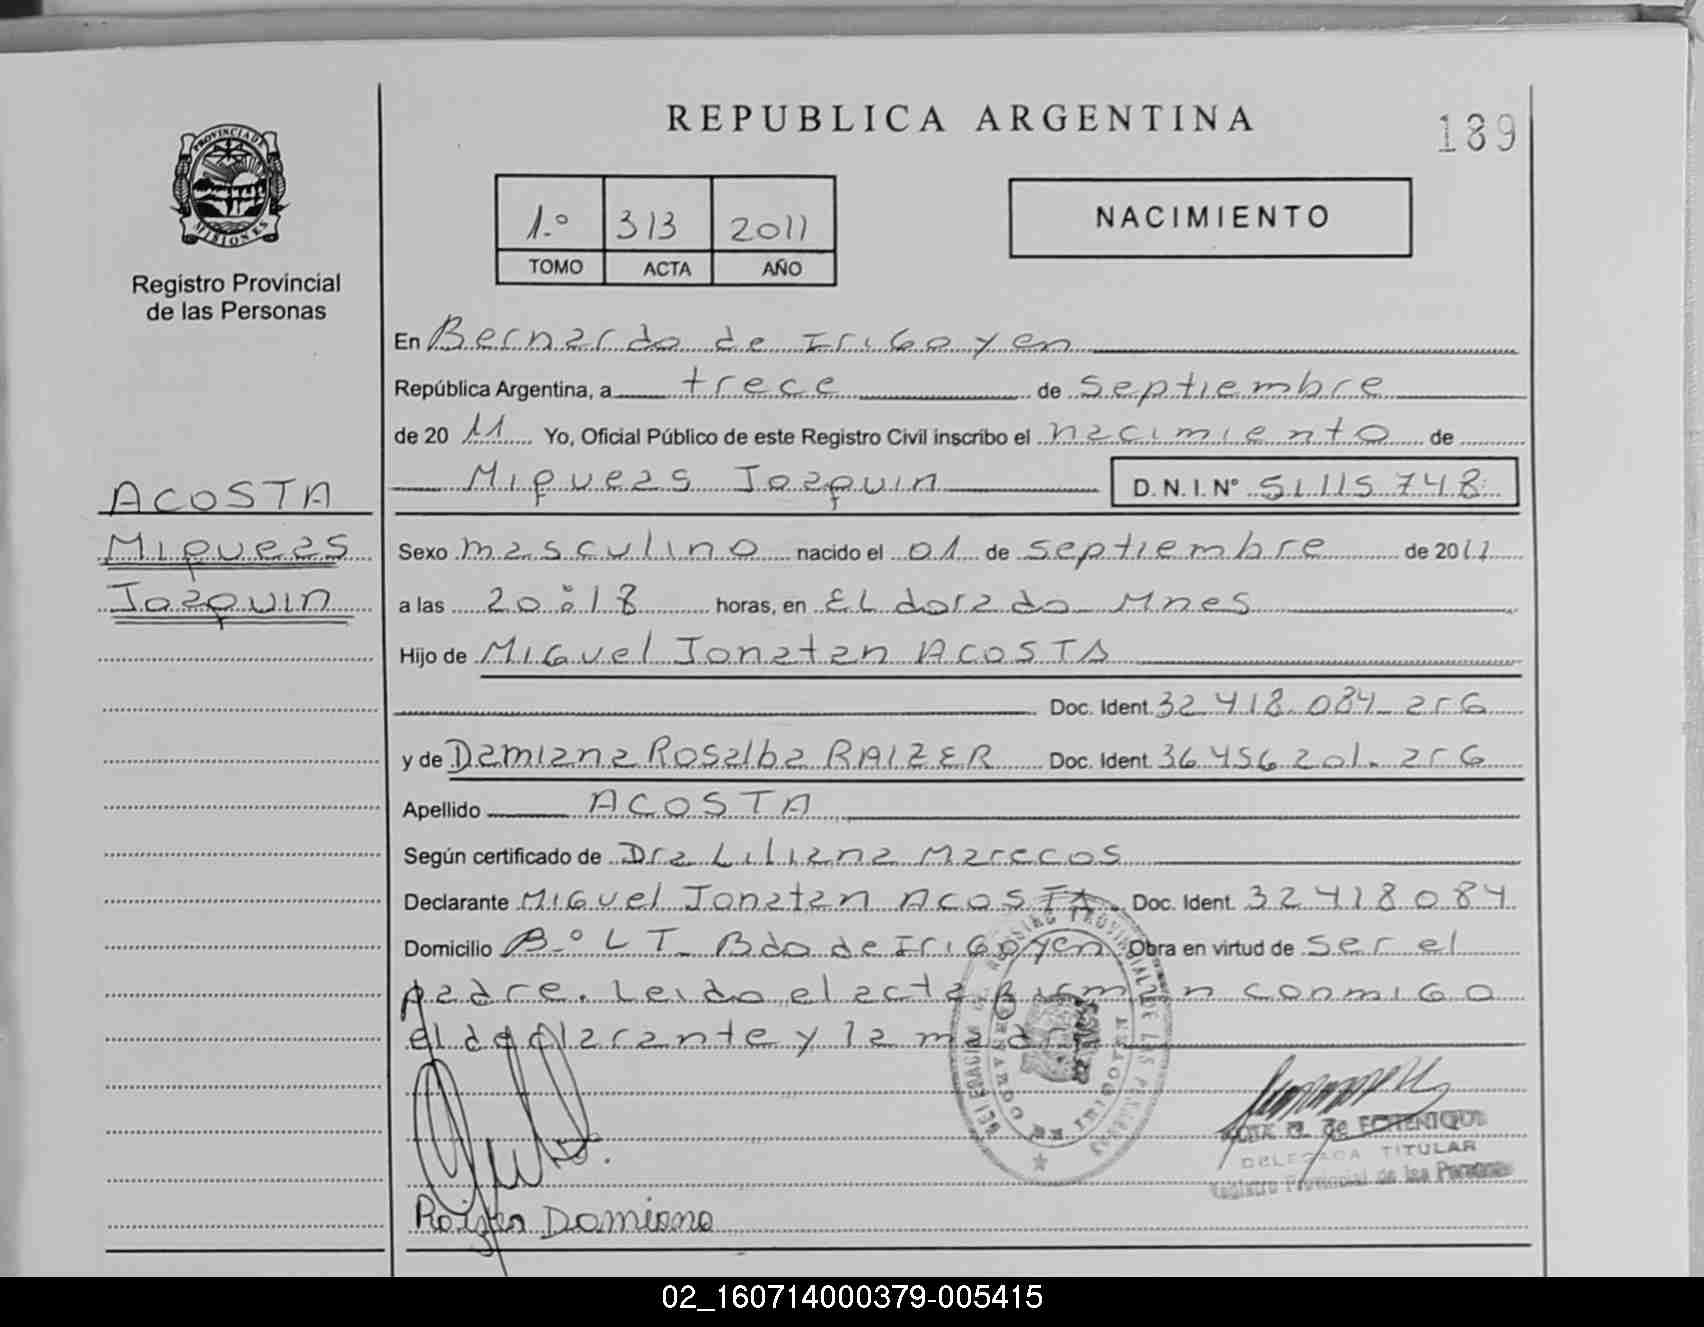 REPUBLICA ARGENTINA
189
PROVINCIA DE
MISIONES
Registro Provincial
de las Personas
1.º 313 2011
TOMO ACTA AÑO
NACIMIENTO
En Bernardo de Irigoyen
República Argentina, a trece de septiembre
de 2011 Yo, Oficial Público de este Registro Civil inscribo el nacimiento de
Miqueas Joaquin D.N.I.Nº 51.115.748
ACOSTA
Miqueas
Joaquin
Sexo masculino nacido el 01 de septiembre de 2011
a las 20:18 horas, en ELdorado Mnes
Hijo de Miguel Jonatan ACOSTA
Doc. Ident. 32.418.084_arG
y de Damiana Rosalba RAIZER Doc. Ident. 36.456.201. arG
Apellido ACOSTA
Según certificado de Dra Liliana Marecos
Declarante Miguel Jonatan ACOSTA Doc. Ident. 32418084
Domicilio B.º L T_ Bdo de Irigoyen Obra en virtud de ser el
padre. Leido el acta firman conmigo
el declarante y la madre
DELEGADA TITULAR
Registro Provincial de las Personas
Raizer Damiana
02_160714000379-005415